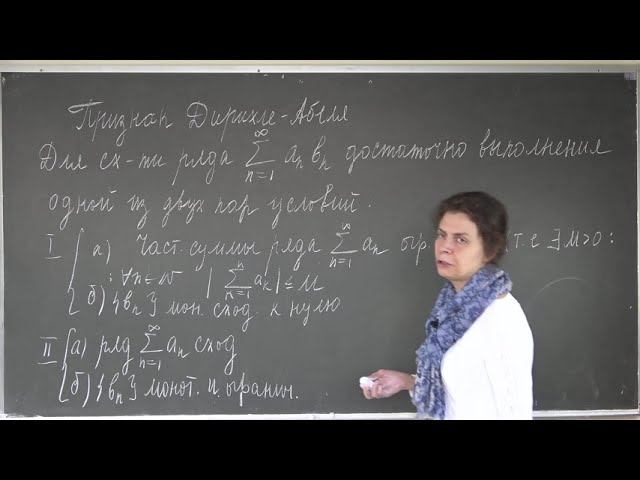 Признак Дирихле-Абеля
Для сх-ти ряда ∑_{n=1}^{∞} a_n b_n достаточно выполнения
одной из двух пар условий.
I { а) Част. суммы ряда ∑_{n=1}^{∞} a_n огр. (т.е ∃ M>0:
: ∀n∈N |∑_{k=1}^{n} a_k| ≤ M
б) {b_n} мон. сход. к нулю
II { а) ряд ∑_{n=1}^{∞} a_n сход
б) {b_n} монот. и огранич.